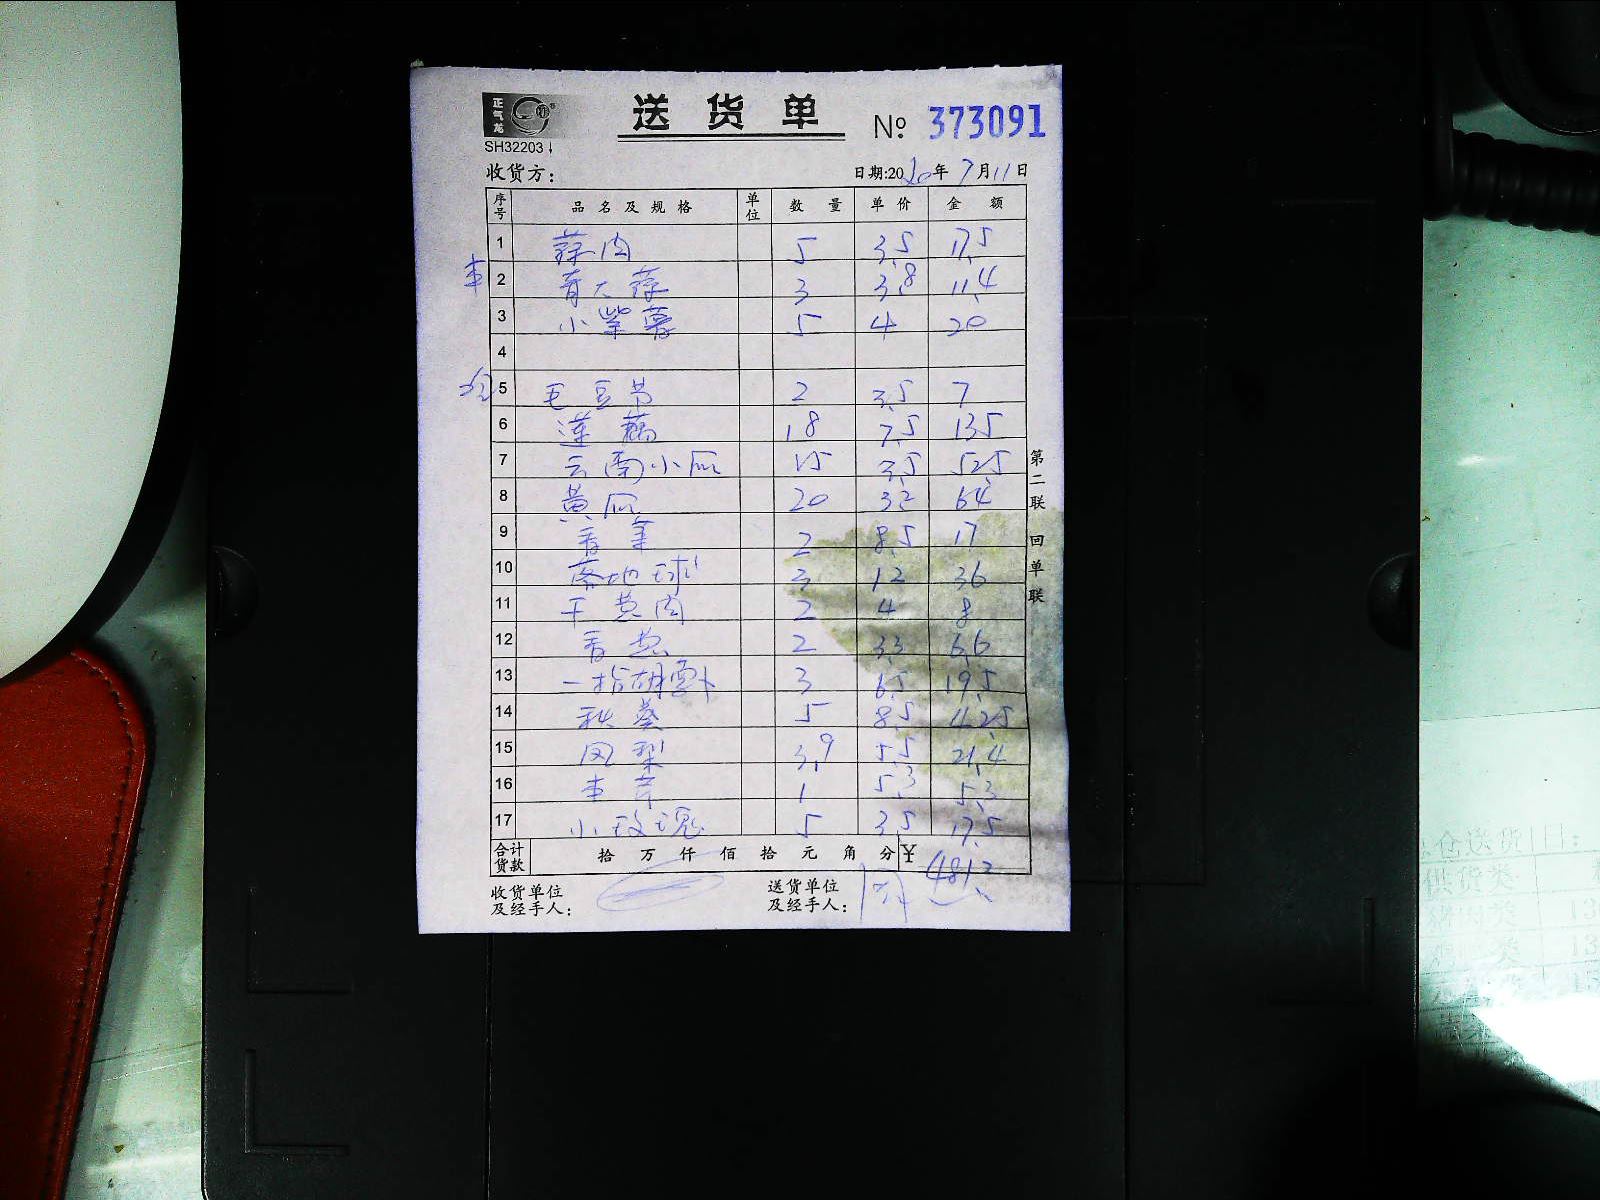 正气龙
送货单
№ 373091
SH32203
收货方:
日期:2020年7月11日
序号 品名及规格 单位 数量 单价 金额
1 蒜肉 5 3.5 17.5
2 青大蒜 3 3.8 11.4
3 小紫蓉 5 4 20
4
5 毛豆节 2 3.5 7
6 莲藕 18 7.5 135
7 云南小瓜 15 3.5 52.5
8 黄瓜 20 3.2 64
9 香 2 8.5 17
10 落地球 3 12 36
11 干葱肉 2 4 8
12 香葱 2 3.3 6.6
13 一指胡 3 6.5 19.5
14 秋葵 5 8.5 42.5
15 凤梨 3.9 5.5 21.4
16 本芹 1 5.3 5.3
17 小玫瑰 5 3.5 17.5
合计货款 拾万仟佰拾元角分 ¥ 481.2
收货单位及经手人:
送货单位及经手人:
第二联 回单联